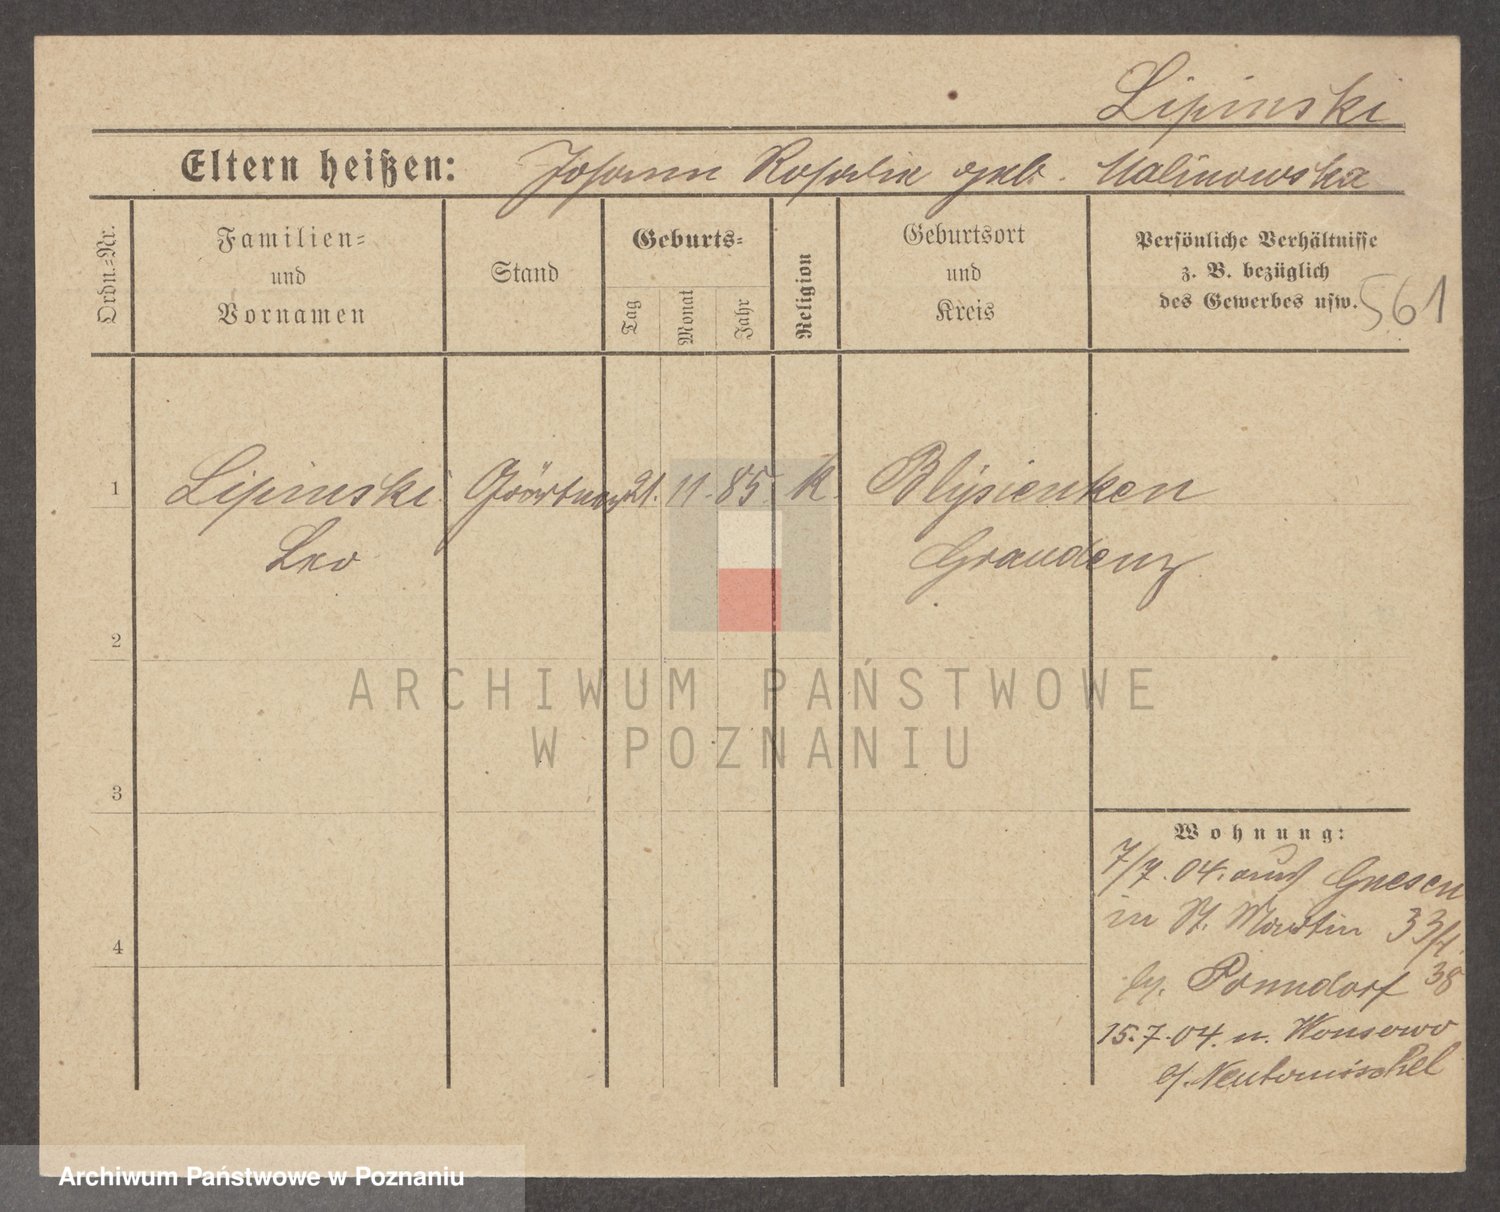 Lipinski
Eltern heißen: Johann Rosalie geb. Malinowska
Ordn.-Nr.
Familien-
und
Vornamen
Stand
Geburts-
Tag
Monat
Jahr
Religion
Geburtsort
und
Kreis
Persönliche Verhältnisse
z. B. bezüglich
des Gewerbes usw.
561
1 Lipinski Gärtner 21. 11. 85. K. Blysienken
Leo Graudenz
2
ARCHIWUM PAŃSTWOWE
W POZNANIU
3
Wohnung:
7/7.04. aus Gnesen
in St. Martin 33/4.
by. Ponndorf 38
15.7.04. n. Wonsowo
Neutomischel
4
Archiwum Państwowe w Poznaniu